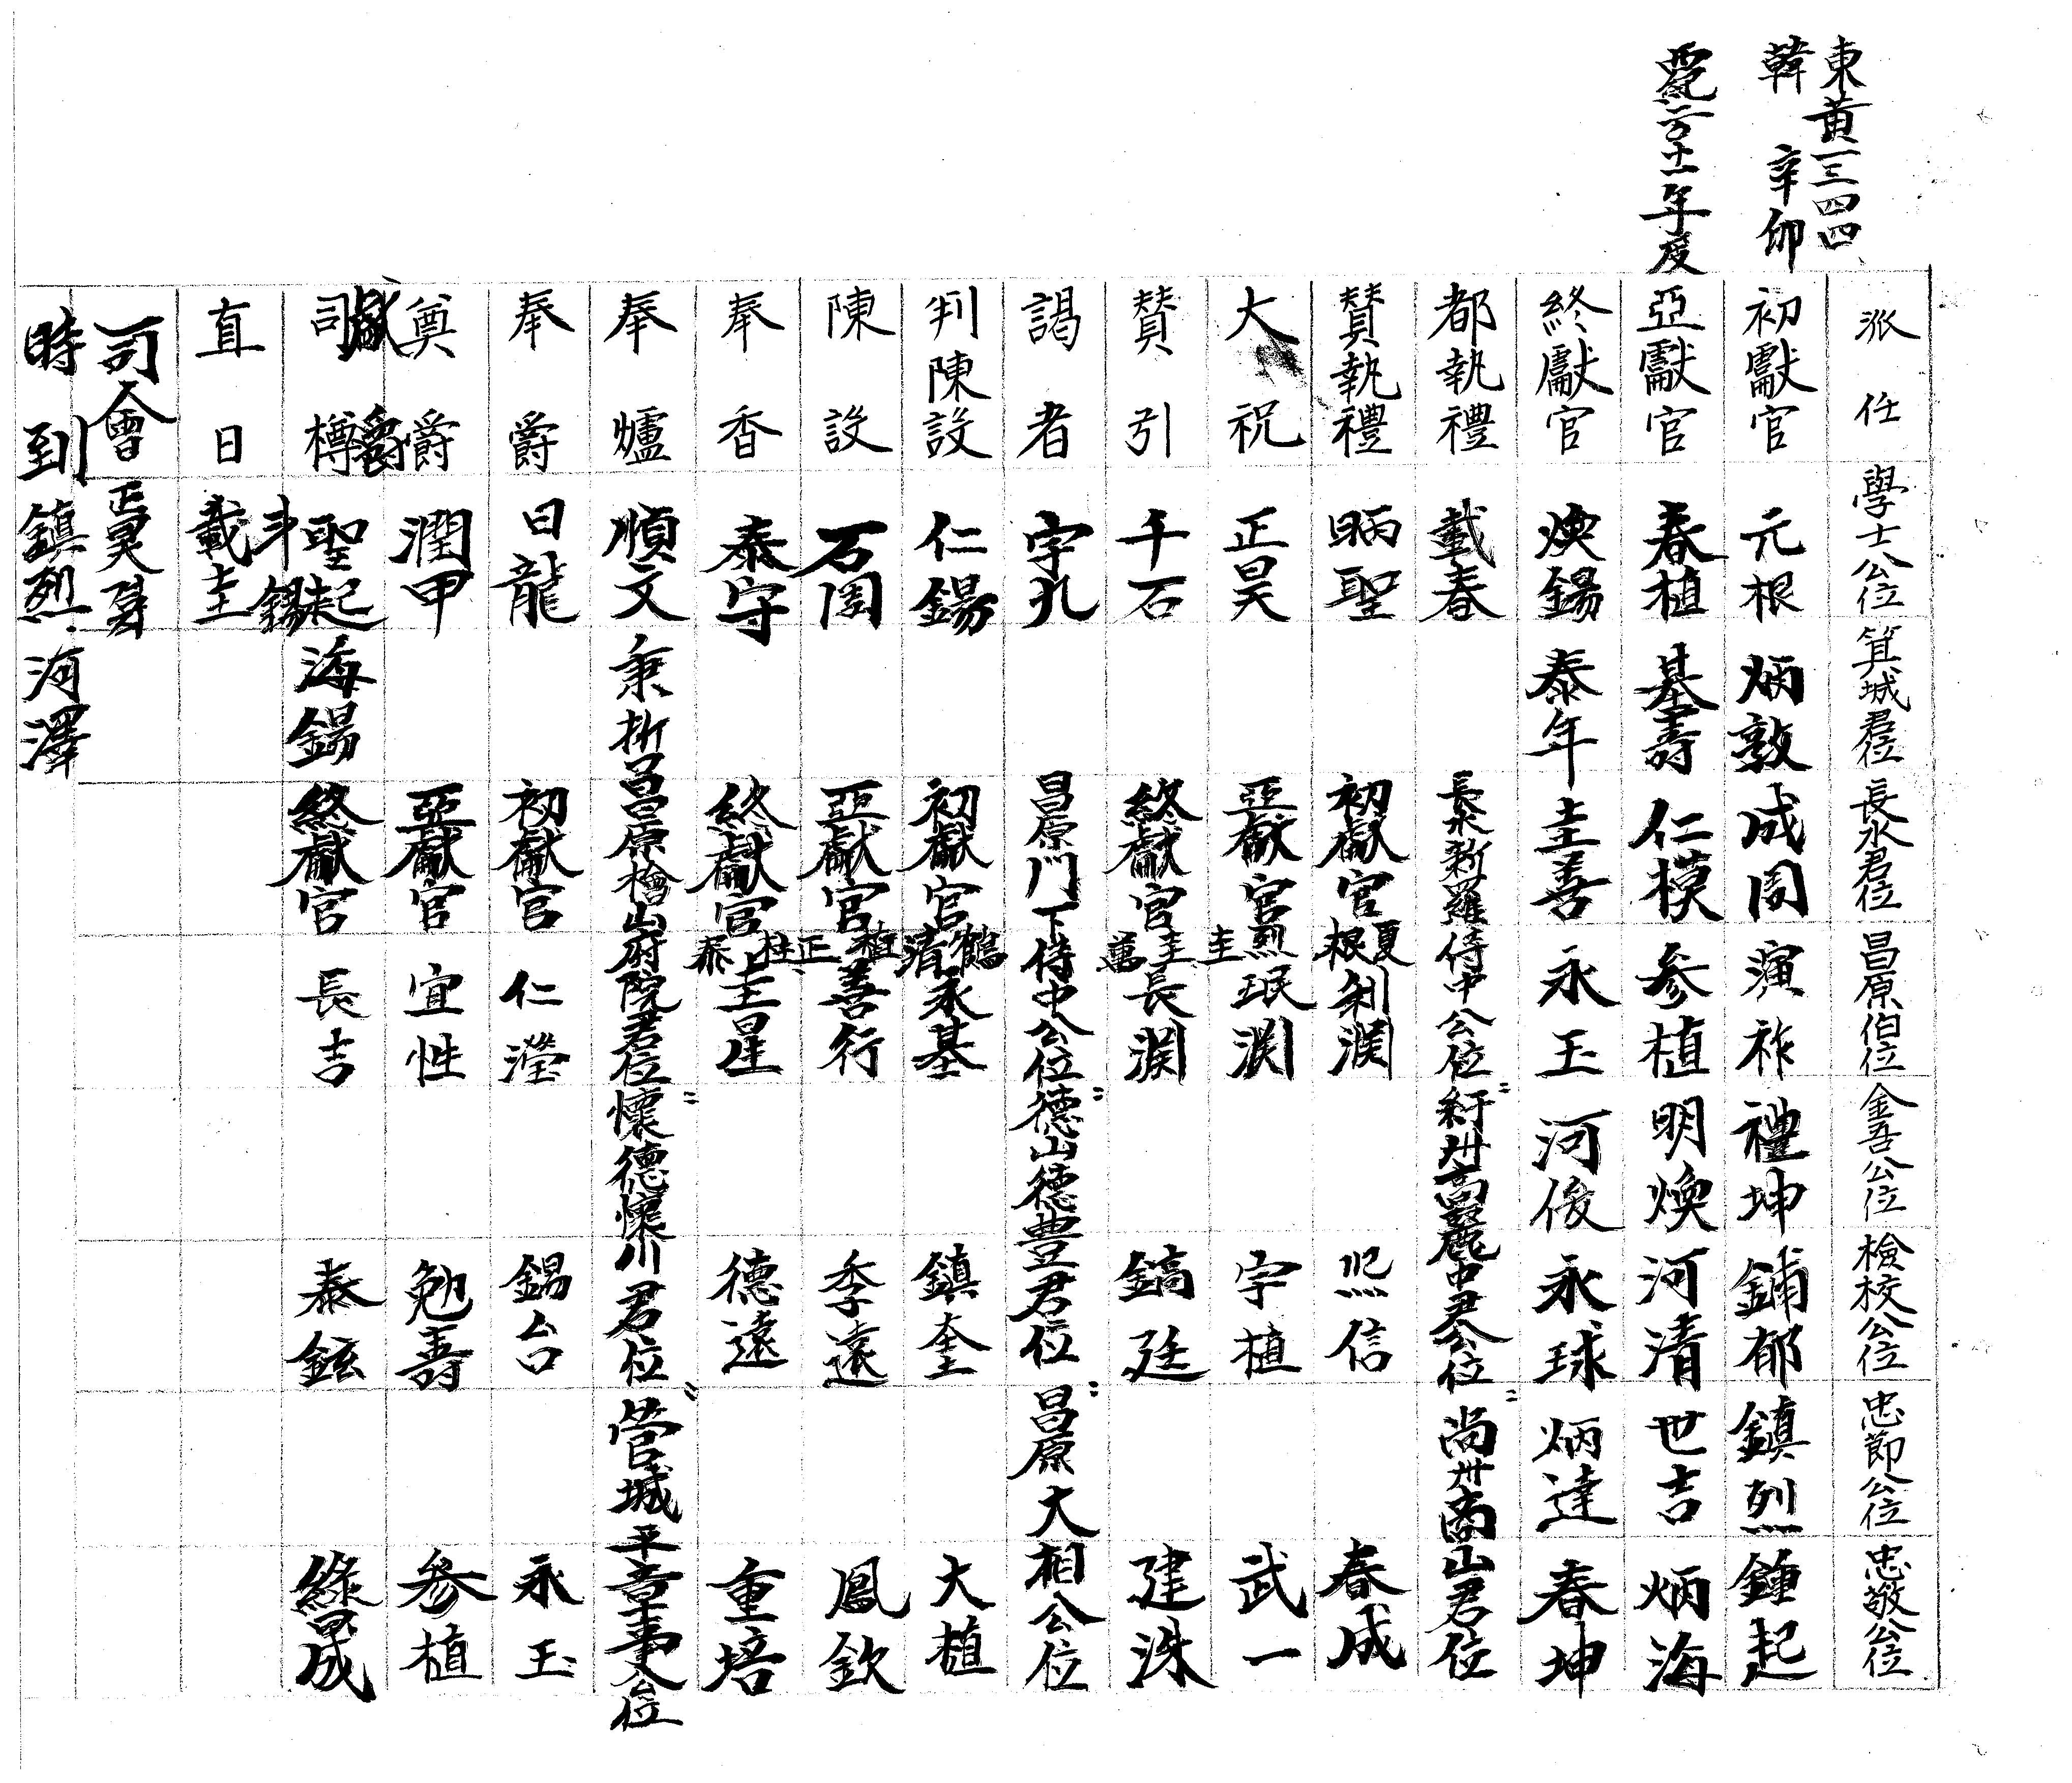 東黃一三四四
韓 辛卯
年度
派任 學士公位 箕城君位 長水君位 昌原伯位 金吾公位 檢校公位 忠節公位 忠敬公位
初獻官 元根 炳敦 成周 演祚 禮坤 鋪郁 鎮烈 鍾起
亞獻官 春植 基壽 仁模 參植 明煥 河清 世吉 炳海
終獻官 煥錫 泰年 圭善 永玉 河俊 永球 炳達 春坤
都執禮 載春 長水新羅侍中公位 高麗中君公位 尚州商山君位
贊執禮 昞聖 初獻官 熙信 春成
大祝 正昊 亞獻官 宇植 武一
贊引 千石 終獻官 鎬廷 建洙
謁者 昌原門下侍中公位 德山德豊君位 昌原大相公位
判陳設 仁錫 初獻官 永基 鎮奎 大植
陳設 亞獻官 善行 季遠 鳳欽
奉香 泰守 終獻官 圭星 德遠 重培
奉爐 順文 秉折 昌原檜山府院君位 懷德懷川君位 管城平章事公位
奉爵 日龍 初獻官 仁瀅 錫台 永玉
奠爵 潤甲 亞獻官 宜性 勉壽 參植
司樽 聖起 海錫 終獻官 長吉 泰鉉
斗錫
直日 載圭
司會 正昊
時到 鎮烈 河澤